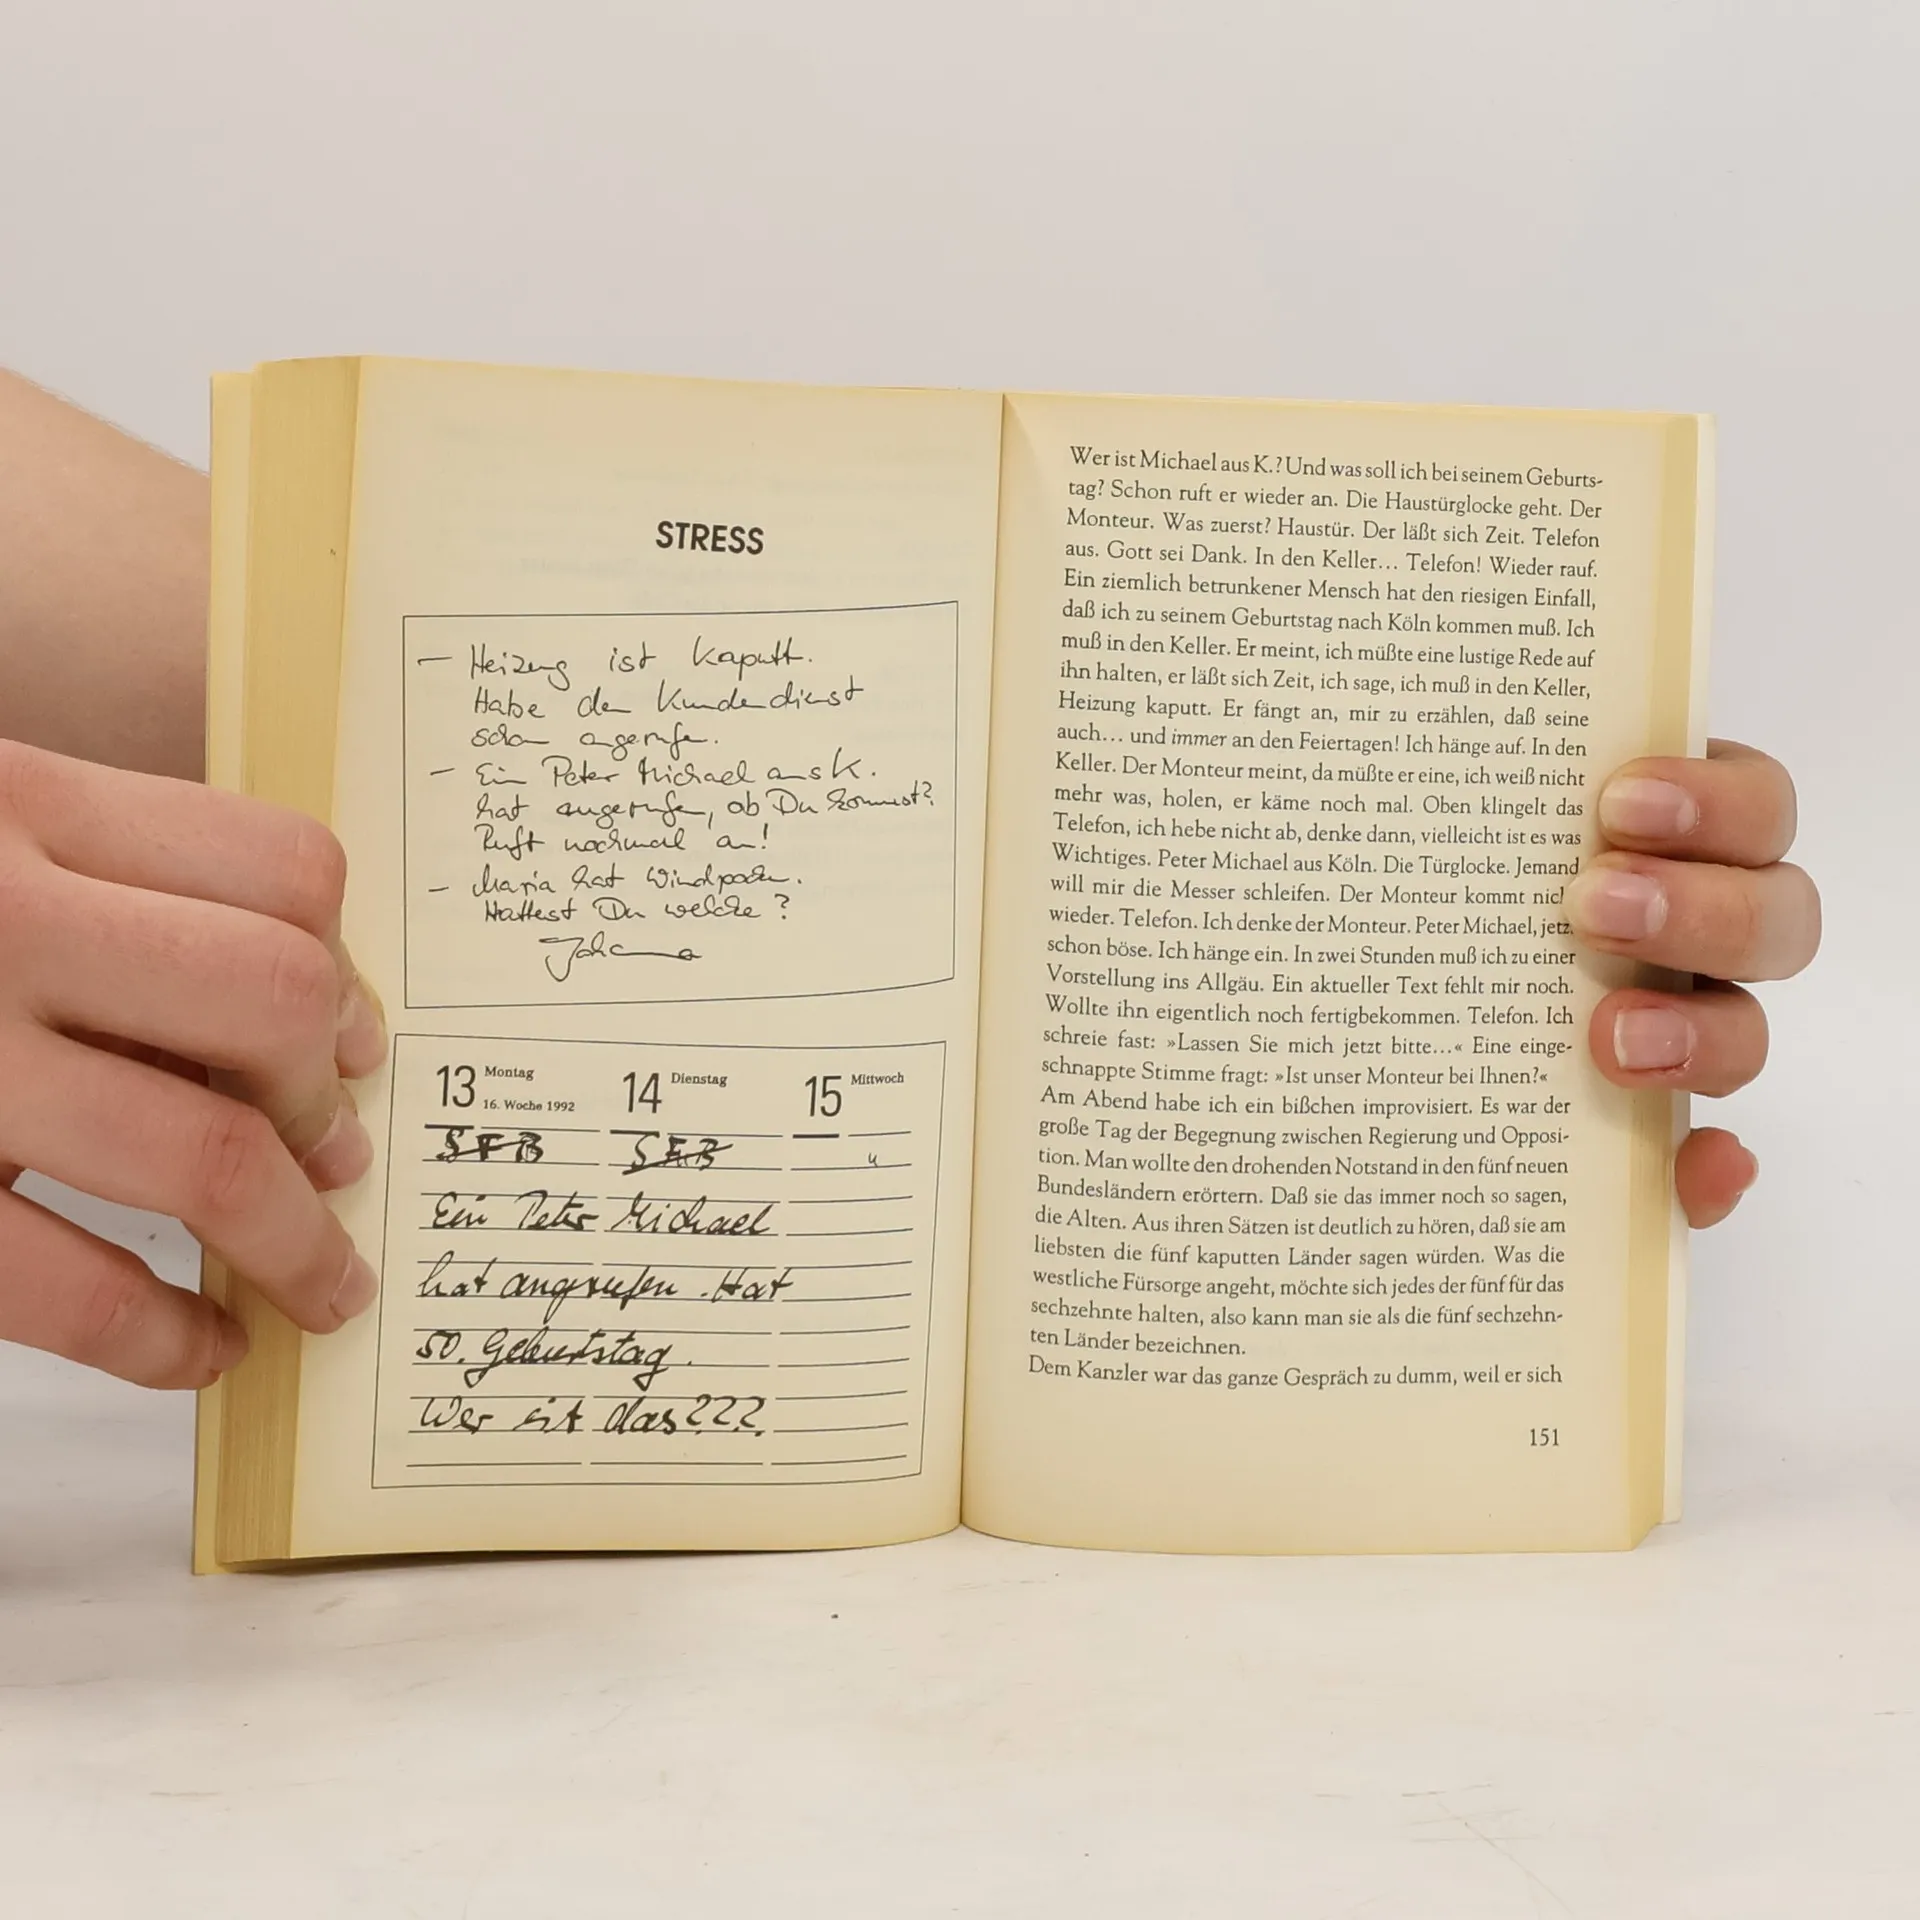 STRESS
– Heizung ist kaputt.
Habe den Kundendienst
schon angerufen.
– Ein Peter Michael aus K.
hat angerufen, ob Du kommst?
Ruft nochmal an!
– Maria hat Windpocken.
Hattest Du welche?
Johanna
13 Montag 14 Dienstag 15 Mittwoch
16. Woche 1992
SFB SFB "
Ein Peter Michael
hat angerufen. Hat
50. Geburtstag.
Wer ist das???
Wer ist Michael aus K.? Und was soll ich bei seinem Geburts-
tag? Schon ruft er wieder an. Die Haustürglocke geht. Der
Monteur. Was zuerst? Haustür. Der läßt sich Zeit. Telefon
aus. Gott sei Dank. In den Keller... Telefon! Wieder rauf.
Ein ziemlich betrunkener Mensch hat den riesigen Einfall,
daß ich zu seinem Geburtstag nach Köln kommen muß. Ich
muß in den Keller. Er meint, ich müßte eine lustige Rede auf
ihn halten, er läßt sich Zeit, ich sage, ich muß in den Keller,
Heizung kaputt. Er fängt an, mir zu erzählen, daß seine
auch... und immer an den Feiertagen! Ich hänge auf. In den
Keller. Der Monteur meint, da müßte er eine, ich weiß nicht
mehr was, holen, er käme noch mal. Oben klingelt das
Telefon, ich hebe nicht ab, denke dann, vielleicht ist es was
Wichtiges. Peter Michael aus Köln. Die Türglocke. Jemand
will mir die Messer schleifen. Der Monteur kommt nich
wieder. Telefon. Ich denke der Monteur. Peter Michael, jetz
schon böse. Ich hänge ein. In zwei Stunden muß ich zu einer
Vorstellung ins Allgäu. Ein aktueller Text fehlt mir noch.
Wollte ihn eigentlich noch fertigbekommen. Telefon. Ich
schreie fast: »Lassen Sie mich jetzt bitte...« Eine einge-
schnappte Stimme fragt: »Ist unser Monteur bei Ihnen?«
Am Abend habe ich ein bißchen improvisiert. Es war der
große Tag der Begegnung zwischen Regierung und Opposi-
tion. Man wollte den drohenden Notstand in den fünf neuen
Bundesländern erörtern. Daß sie das immer noch so sagen,
die Alten. Aus ihren Sätzen ist deutlich zu hören, daß sie am
liebsten die fünf kaputten Länder sagen würden. Was die
westliche Fürsorge angeht, möchte sich jedes der fünf für das
sechzehnte halten, also kann man sie als die fünf sechzehn-
ten Länder bezeichnen.
Dem Kanzler war das ganze Gespräch zu dumm, weil er sich
151